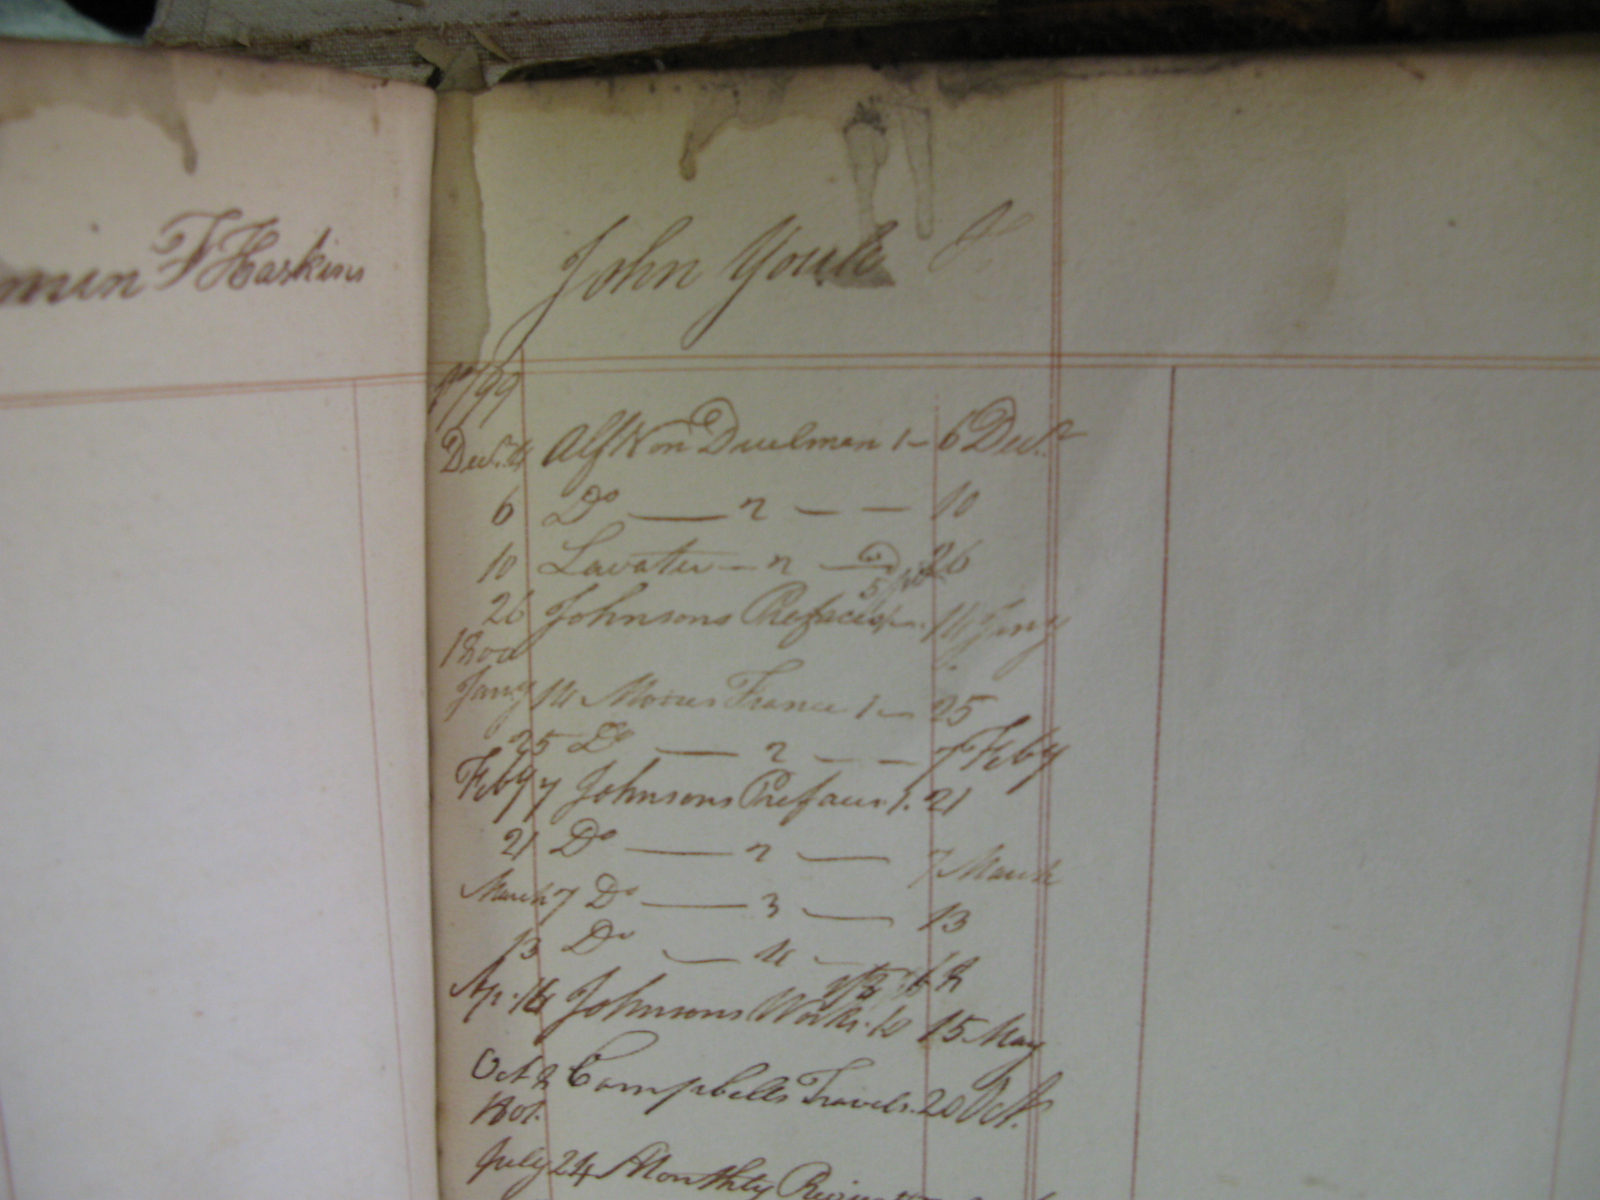 F Haskins
John Youle
1799
Decr. 4 Alf Von Duelman 1 – 6 Decr
6 Do — 2 — — 10
10 Lavater — 2 — 26
26 Johnsons Prefaces 14 Jany
1800
Jany 14 Moores France 1 — 25
25 Do — 2 — — 7 Feby
Feby 7 Johnsons Prefaces 1. 21
21 Do — 2 — 7 March
March 7 Do — 3 — 13
13 Do — 4 —
Ap. 14 Johnsons Works. 10 15 May
Oct 8 Campbells Travels. 20 Oct.
1801.
July 24 Monthly Review